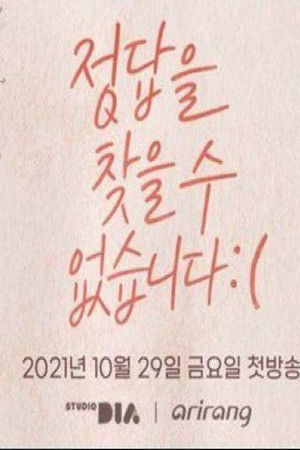 정답을
찾을 수
없습니다:(
2021년 10월 29일 금요일 첫방송
STUDIO DIA | arirang